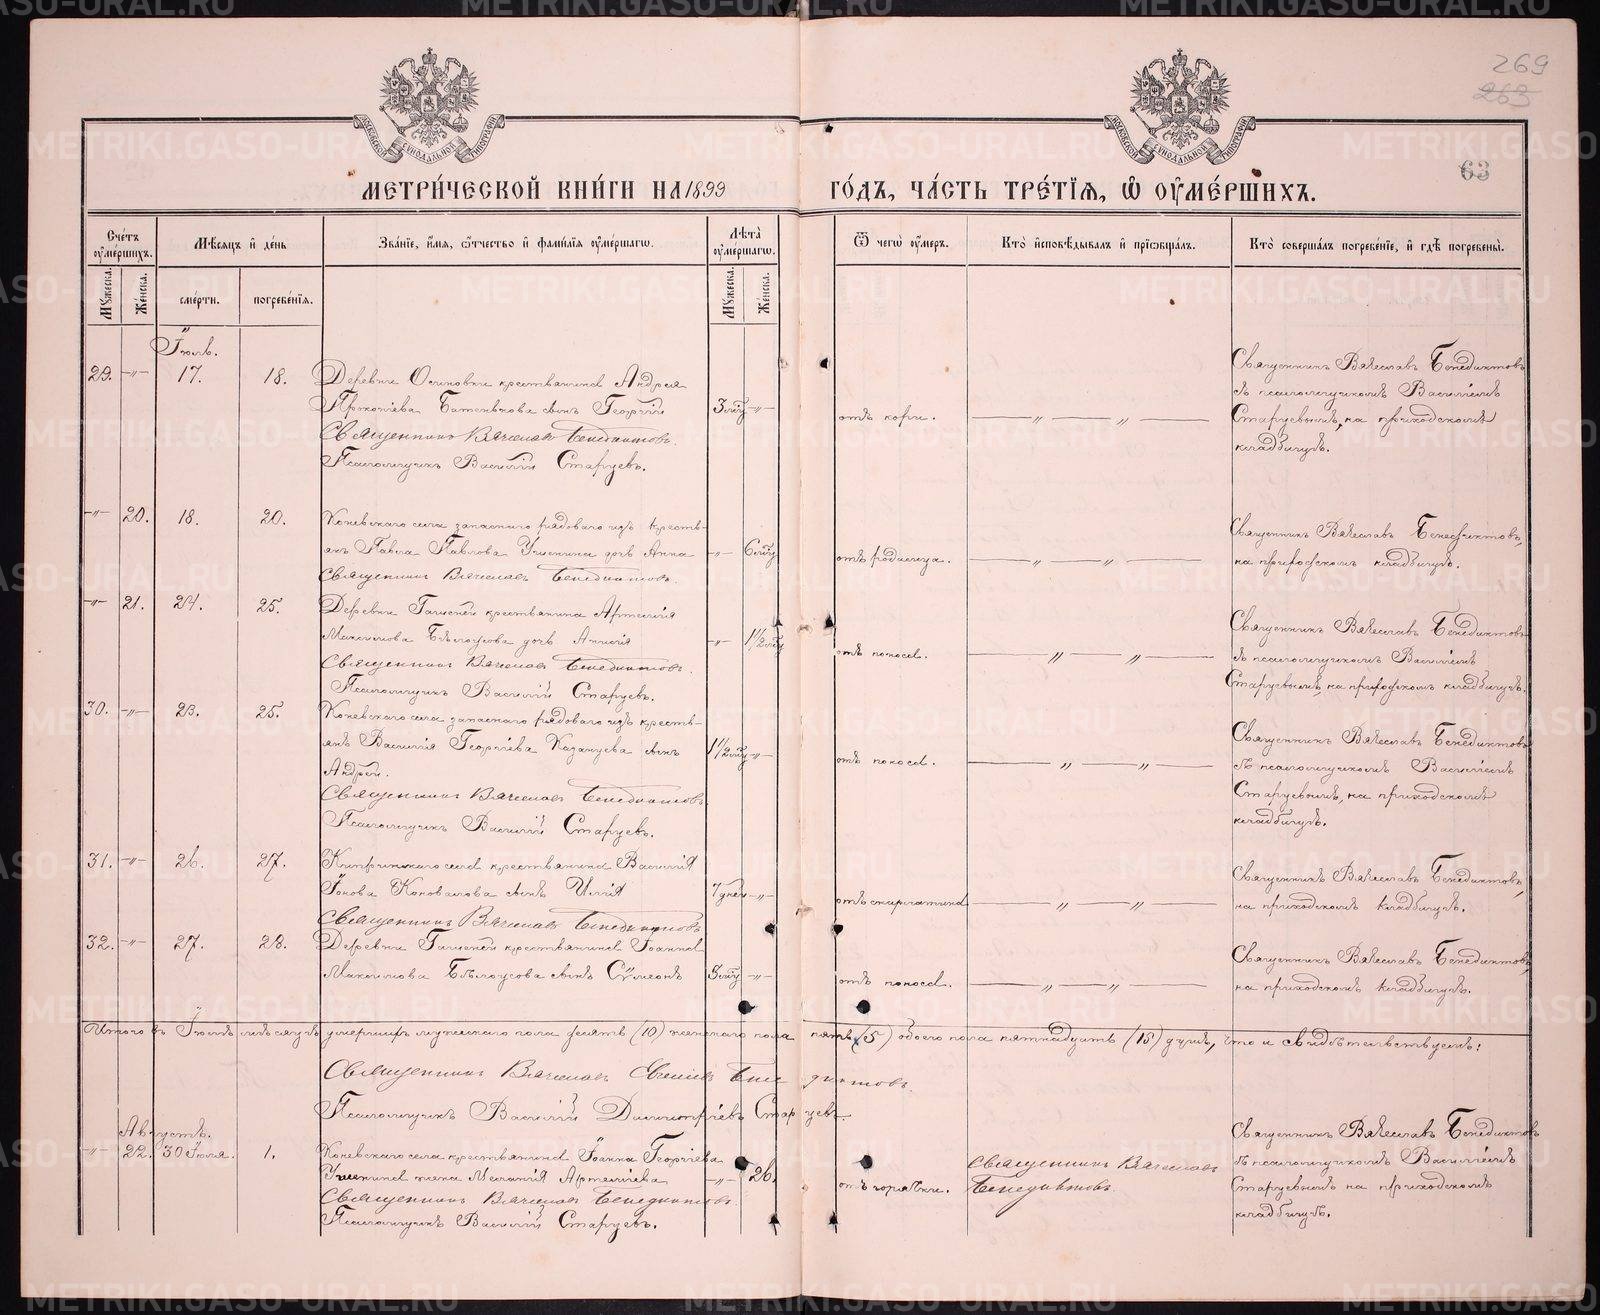 269
263
63
МЕТРИ́ЧЕСКОЙ КНИ́ГИ НА 1899 ГО́ДЪ, ЧА́СТЬ ТРЕ́ТЇѦ, Ѡ҆ ОУ҆МЕ́РШИХЪ.
Сче́тъ оу҆ме́ршихъ.
Мꙋ́жеска.
Же́нска.
Мѣ́сѧцъ и҆ де́нь
сме́рти.
погребе́нїѧ.
Зва́нїе, и҆́мѧ, ѻ҆́тчество и҆ фами́лїѧ оу҆ме́ршагѡ.
Лѣ́та оу҆ме́ршагѡ.
Мꙋ́жеска.
Же́нска.
Ѿ чегѡ̀ оу҆́меръ.
Кто̀ и҆сповѣ́дывалъ и҆ прїѡбща́лъ.
Кто̀ соверша́лъ погребе́нїе, и҆ гдѣ̀ погребены̀.
Іюль.
29. -"- 17. 18. Деревни Осиновки крестьянина Андрея
Прокопіева Батенькова сынъ Георгій
3 лѣтъ -"- отъ кори. — " — " —
Священникъ Вячеславъ Бенедиктовъ.
Псаломщикъ Василій Старцевъ.
Священникъ Вячеславъ Бенедиктовъ
съ псаломщикомъ Василіемъ
Старцевымъ, на приходскомъ
кладбищѣ.
-"- 20. 18. 20. Коневскаго села запаснаго рядоваго изъ кресть-
янъ Павла Павлова дочь Анна
-"- отъ родимца. — " — " —
Священникъ Вячеславъ Бенедиктовъ.
Священникъ Вячеславъ Бенедиктовъ,
на приходскомъ кладбищѣ.
-"- 21. 24. 25. Деревни Гашеней крестьянина Артемія
Максимова Бѣлоусова дочь
-"- 1 1/2 лѣтъ отъ поноса. — " — " —
Священникъ Вячеславъ Бенедиктовъ.
Псаломщикъ Василій Старцевъ.
Священникъ Вячеславъ Бенедиктовъ
съ псаломщикомъ Василіемъ
Старцевымъ, на приходскомъ кладбищѣ.
30. -"- 23. 25. Коневскаго села запаснаго рядоваго изъ кресть-
янъ Василія Георгіева Казанцева сынъ
Андрей.
1 1/2 лѣтъ -"- отъ поноса. — " — " —
Священникъ Вячеславъ Бенедиктовъ
Псаломщикъ Василій Старцевъ.
Священникъ Вячеславъ Бенедиктовъ
съ псаломщикомъ Василіемъ
Старцевымъ, на приходскомъ
кладбищѣ.
31. -"- 26. 27. села крестьянина Василія
Іонова Коновалова сынъ Илія
7 дней -"- отъ скарлатины — " — " —
Священникъ Вячеславъ Бенедиктовъ
Священникъ Вячеславъ Бенедиктовъ,
на приходскомъ кладбищѣ.
32. -"- 27. 28. Деревни Гашеней крестьянина Іоанна
Максимова Бѣлоусова сынъ Сѵмеонъ
-"- отъ поноса. — " — " —
Священникъ Вячеславъ Бенедиктовъ,
на приходскомъ кладбищѣ.
Итого въ Іюлѣ мѣсяцѣ умершихъ мужескаго пола десять (10) женскаго пола пять (5) обоего пола пятнадцать (15) душъ, что и свидѣтельствуемъ:
Священникъ Вячеславъ Бенедиктовъ.
Псаломщикъ Василій Димитріевъ Старцевъ.
Августъ.
-"- 22. 30 Іюля. 1. Коневскаго села крестьянина Іоанна Георгіева
жена Меланія Артеміева
-"- 26. отъ горячки.
Священникъ Вячеславъ
Бенедиктовъ.
Священникъ Вячеславъ Бенедиктовъ.
Псаломщикъ Василій Старцевъ.
Священникъ Вячеславъ Бенедиктовъ
съ псаломщикомъ Василіемъ
Старцевымъ на приходскомъ
кладбищѣ.
METRIKI.GASO-URAL.RU